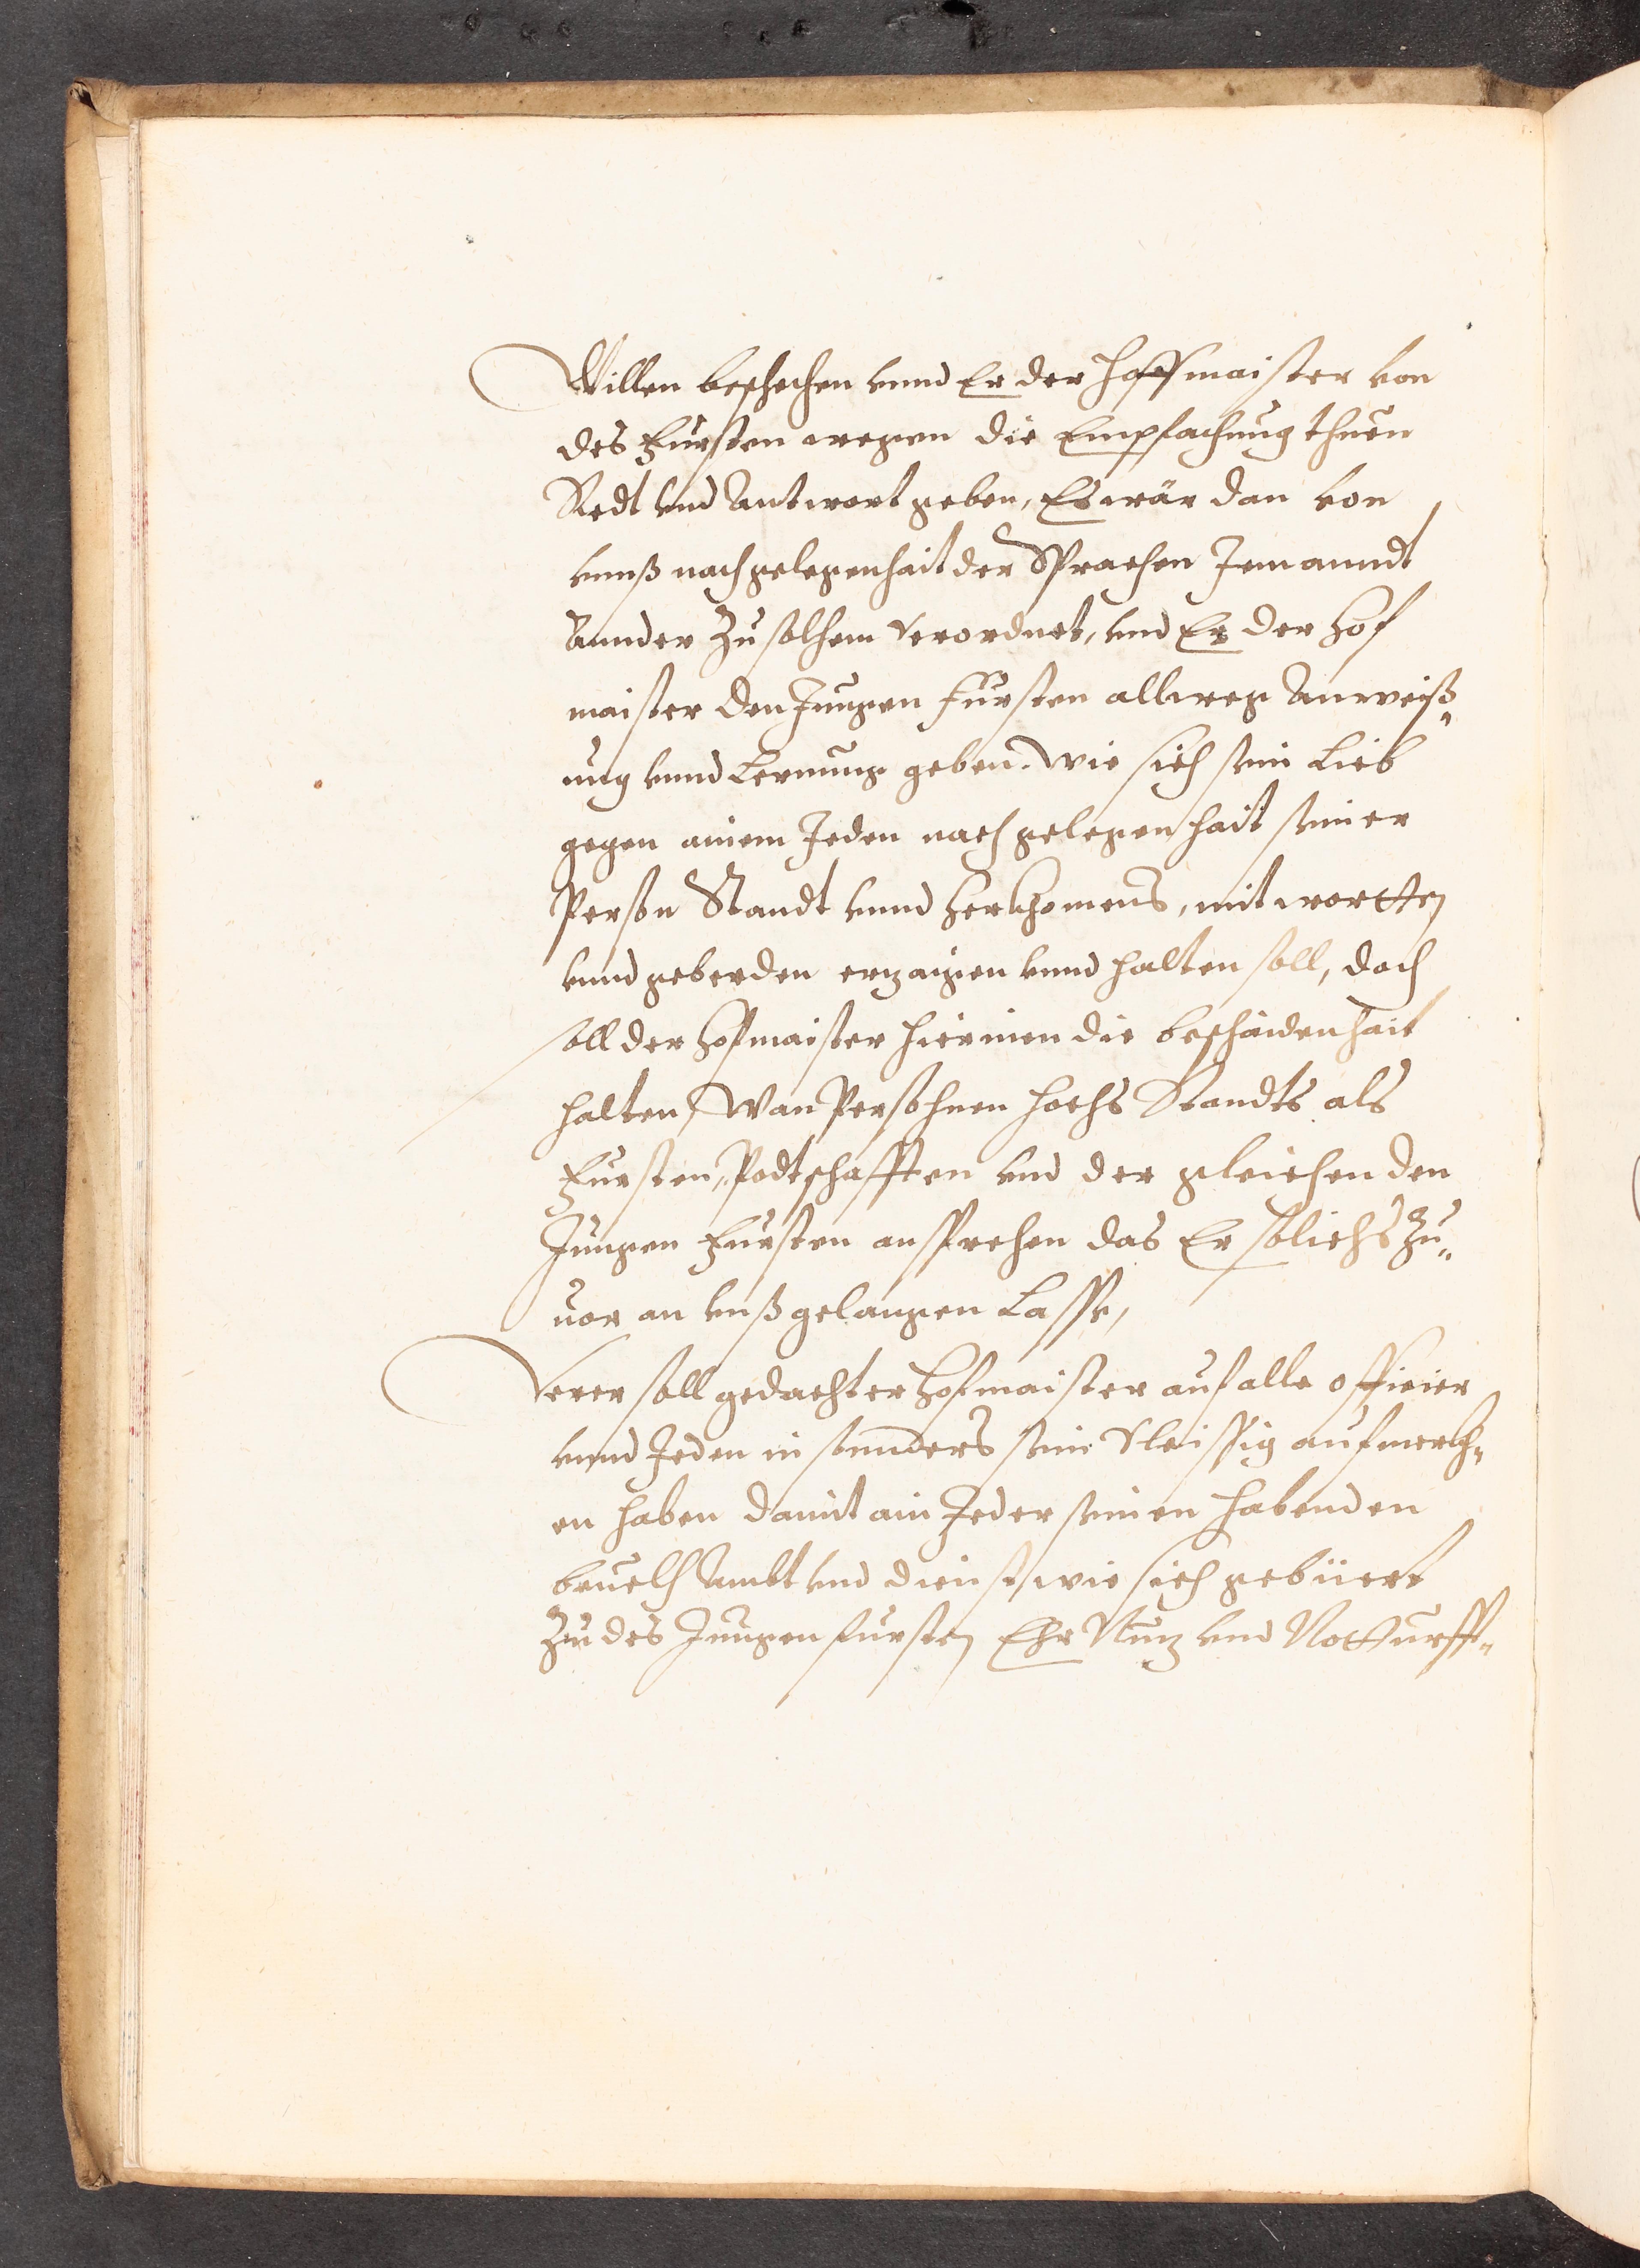 Willen beschechen vnnd Er der hoffmaister von
des Fursten wegen die Empfachung thuen
Redt vnd Antwort geben, Es wär dan von
vnnß nach gelegenhait der Sprachen Jemanndt
Annder Zu solhem verordnet, vnd Er der Hof
maister den Jungen fursten allweg Anweiß„
ung vnnd Lernung geben. wie sich sein Lieb
gegen ainem Jeden nach gelegenhait seiner
Person Standt vnnd herkhomens, mit wortten
vnnd geberden erzaigen vnnd halten soll, doch
soll der Hofmaister hierinen die beschaidenhait
halten, Wan Persohnen hochs Standts als
Fursten, Podtschafften vnd der gleichen den
Jungen Fursten ansprechen das Er solichs Zu„
uor an vnß gelangen Lasse,
Verer soll gedachter Hofmaister auf alle officier
vnnd Jeden in sonnders sein vleissig aufmerkh„
en haben damit ain Jeder seinen habenden
beuelh Ambt vnd dienst, wie sich gebüert
Zu des Jungen fursten Ehr Nuz vnd Notturfft„